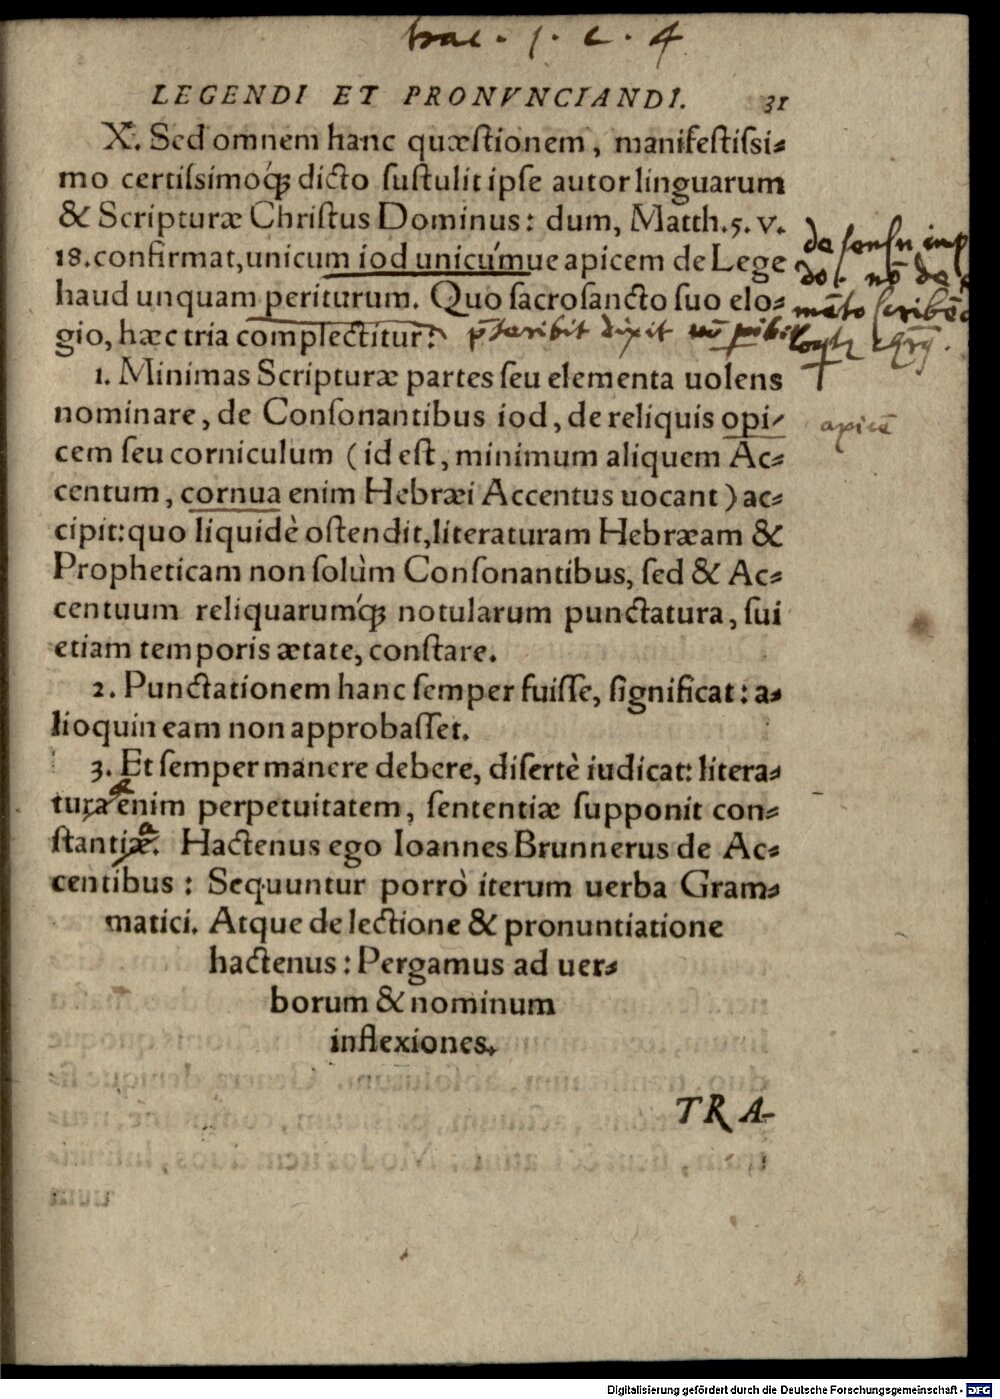 trac. 1. c. 4
LEGENDI ET PRONVNCIANDI. 31
X. Sed omnem hanc quæstionem, manifestissi-
mo certissimoq́; dicto sustulit ipse autor linguarum
& Scripturæ Christus Dominus: dum, Matth. 5. v.
18. confirmat, unicum iod unicúmue apicem de Lege
haud unquam periturum. Quo sacrosancto suo elo-
gio, hæc tria complectitur:
1. Minimas Scripturæ partes seu elementa uolens
nominare, de Consonantibus iod, de reliquis opi-
apicē
cem seu corniculum (id est, minimum aliquem Ac-
centum, cornua enim Hebræi Accentus uocant) ac-
cipit: quo liquidè ostendit, literaturam Hebræam &
Propheticam non solùm Consonantibus, sed & Ac-
centuum reliquarumq́; notularum punctatura, sui
etiam temporis ætate, constare.
2. Punctationem hanc semper fuisse, significat: a-
lioquin eam non approbasset.
3. Et semper manere debere, disertè iudicat: litera-
turæ enim perpetuitatem, sententiæ supponit con-
stantiæ. Hactenus ego Ioannes Brunnerus de Ac-
centibus: Sequuntur porrò iterum uerba Gram-
matici. Atque de lectione & pronuntiatione
hactenus: Pergamus ad uer-
borum & nominum
inflexiones.
TRA-
Digitalisierung gefördert durch die Deutsche Forschungsgemeinschaft - DFG